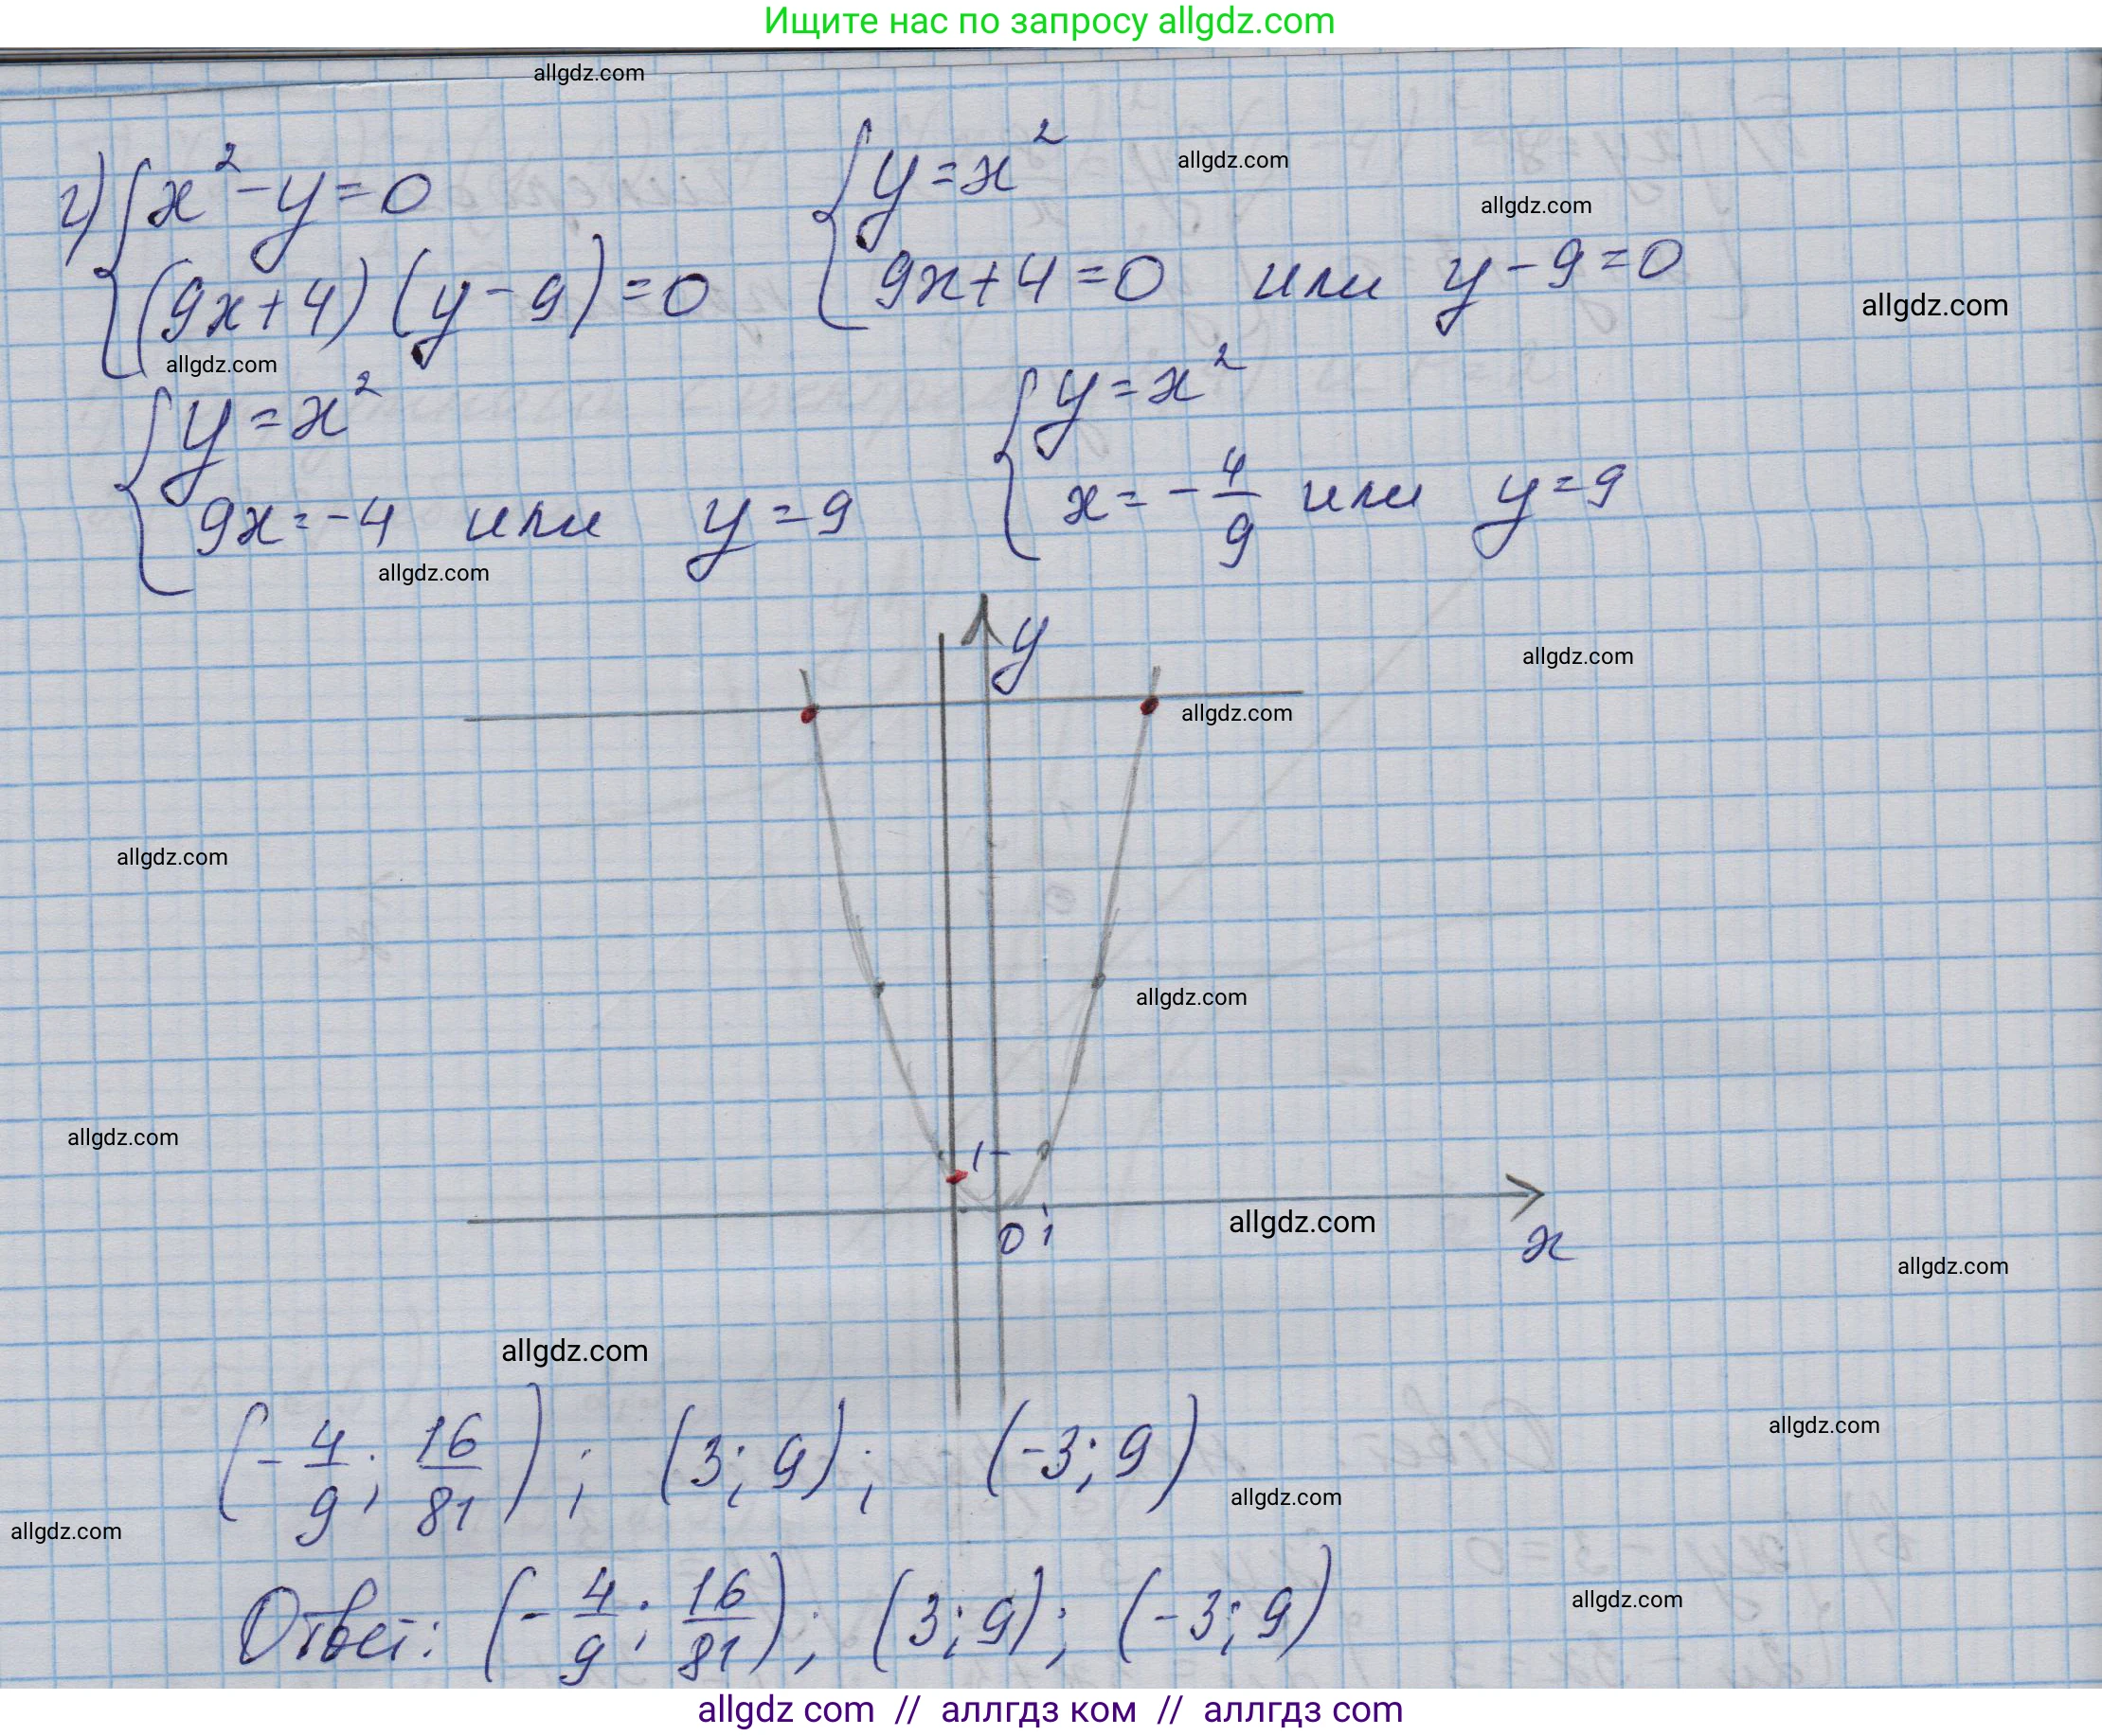 Ищите нас по запросу allgdz.com
allgdz.com
г) { x² - y = 0
(9x+4)(y-9)=0
{ y = x²
9x+4=0 или y-9=0
allgdz.com
allgdz.com
allgdz.com
allgdz.com
{ y = x²
9x=-4 или y=9
{ y = x²
x = -4/9 или y=9
allgdz.com
y
allgdz.com
allgdz.com
allgdz.com
allgdz.com
allgdz.com
1
0 1
x
allgdz.com
allgdz.com
allgdz.com
allgdz.com
(-4/9; 16/81); (3; 9); (-3; 9)
allgdz.com
allgdz.com
Ответ: (-4/9; 16/81); (3; 9); (-3; 9)
allgdz.com
allgdz com // аллгдз ком // аллгдз com